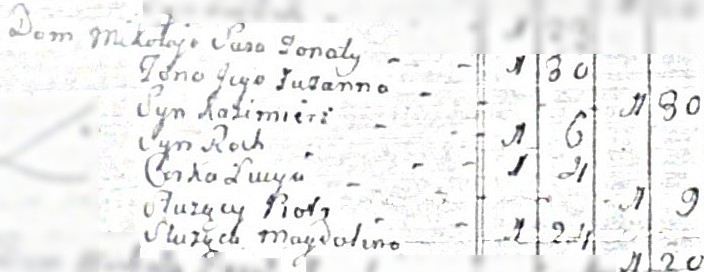 Dom Mikołaja Susa Żonaty - - 1 30
Żona Jego Zuzanna - - 1 30
Syn Kazimierz - - 1 6
Syn Roch - - 1 4
Córka Lucya - - 1 9
Służący Piotr - - 1 24
Służąca Magdalena - - 1 20